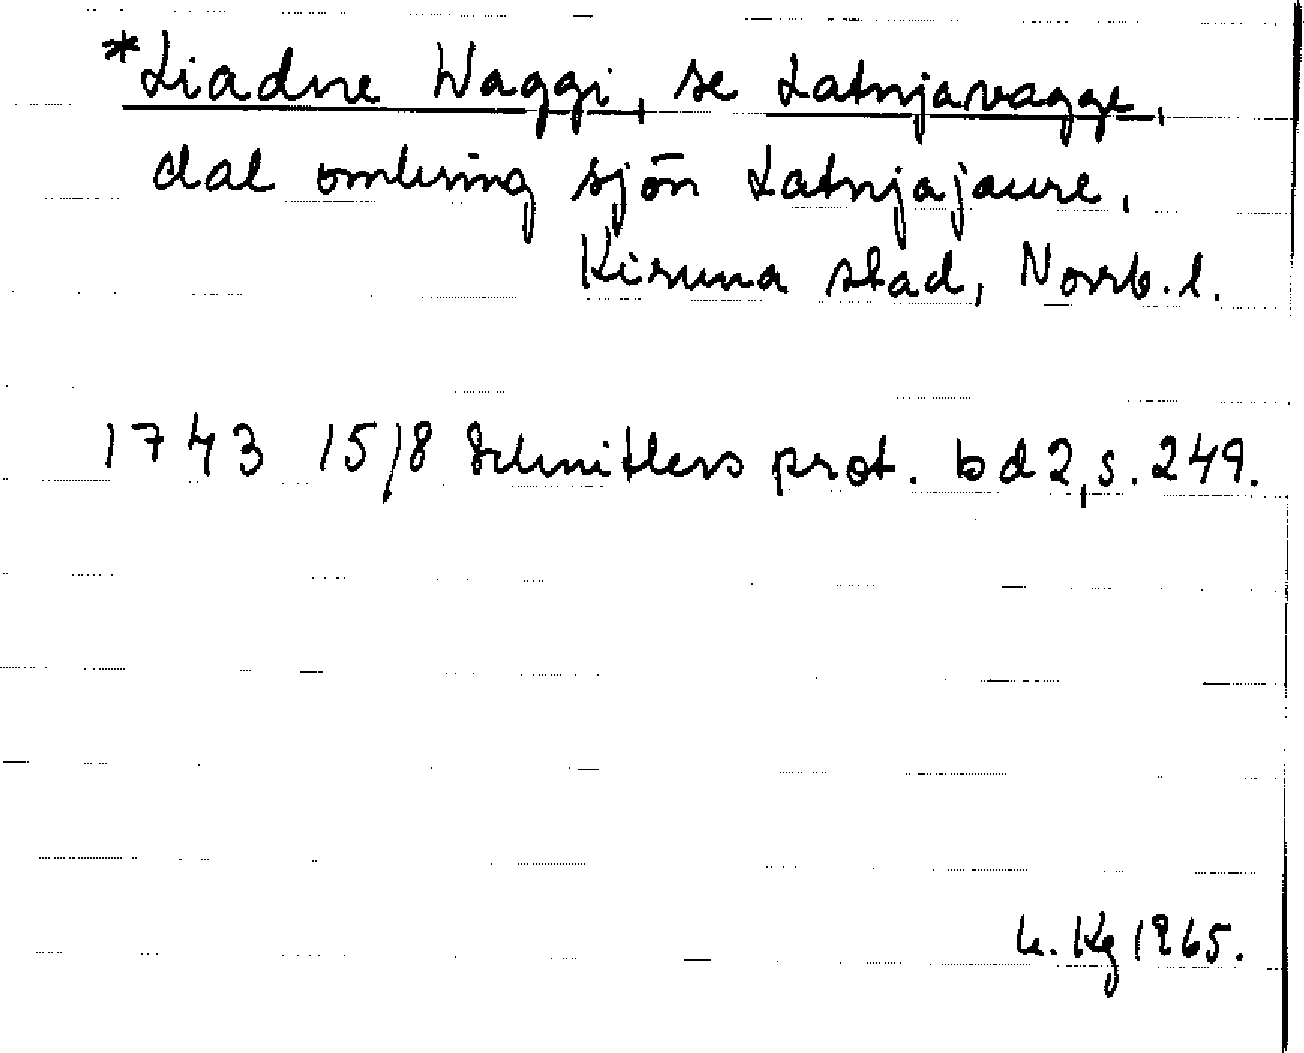 *Liadne Waggi, se Latnjavagge,
dal omkring sjön Latnjajaure,
Kiruna stad, Norrb. l.
1743 15/8 Schnitlers prot. bd 2, s. 249.
h. Kg 1965.